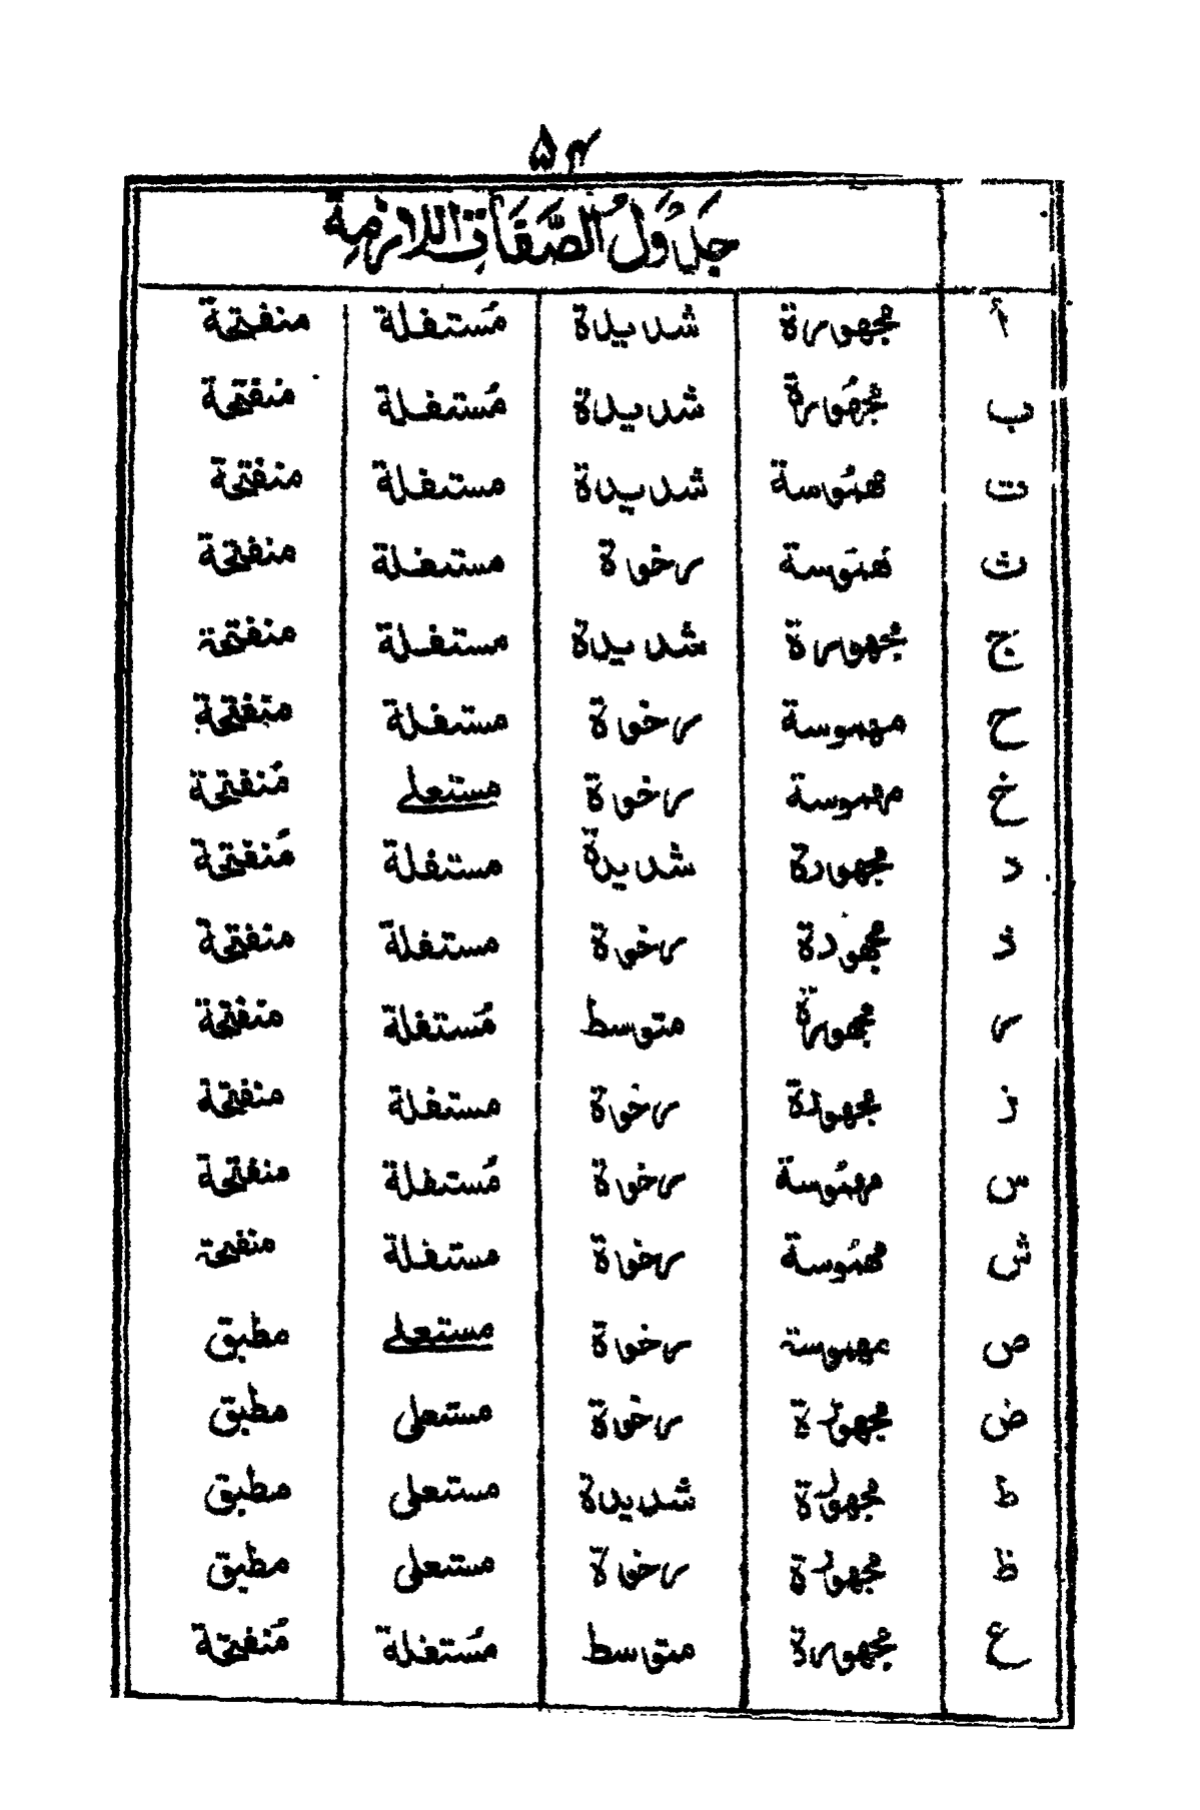 ۵۴
جَدْوَلُ الصِّفَاتِ اللَّازِمَةِ
أ مجهورة شديدة مُستفلة منفتحة
ب مجهُورة شديدة مُستفلة منفتحة
ت مهمُوسة شديدة مستفلة منفتحة
ث مهمَوسة رخوة مستفلة منفتحة
ج مجهورة شديدة مستفلة منفتحة
ح مهموسة رخوة مستفلة منفتحة
خ مهموسة رخوة مستعلے مُنفتحة
د مجهورة شديدة مستفلة مُنفتحة
ذ مجهورة رخوة مستفلة منفتحة
ر مجهورة متوسط مُستفلة منفتحة
ز مجهورة رخوة مستفلة منفتحة
س مهمُوسة رخوة مُستفلة منفتحة
ش مهمُوسة رخوة مستفلة منفتحة
ص مهموسة رخوة مستعلے مطبق
ض مجهورة رخوة مستعلی مطبق
ط مجهورة شديدة مستعلی مطبق
ظ مجهورة رخوة مستعلی مطبق
ع مجهورة متوسط مُستفلة مُنفتحة